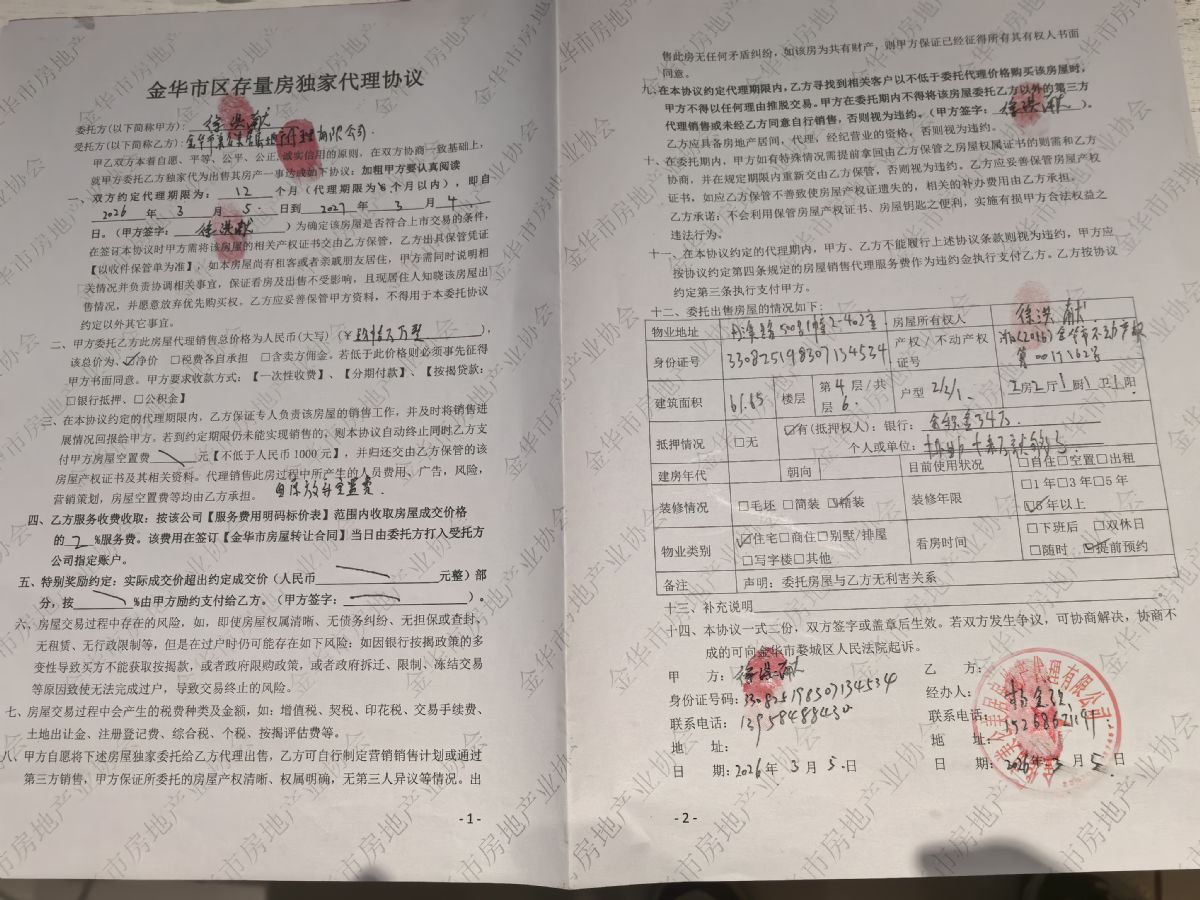 金华市区存量房独家代理协议
委托方(以下简称甲方)：徐洪献
受托方(以下简称乙方)：金华市 有限公司
甲乙双方本着自愿、平等、公平、公正、诚实信用的原则，在双方协商一致基础上，
就甲方委托乙方独家代为出售其房产一事达成如下协议：加粗甲方要认真阅读
一、双方约定代理期限为： 12 个月（代理期限为6个月以内），即自
2026 年 3 月 5 日到 2027 年 3 月 4
日。（甲方签字：徐洪献）为确定该房屋是否符合上市交易的条件，
在签订本协议时甲方需将该房屋的相关产权证书交由乙方保管，乙方出具保管凭证
【以收件保管单为准】，如本房屋尚有租客或者亲戚朋友居住，甲方需同时说明相
关情况并负责协调相关事宜，保证看房及出售不受影响，且现居住人知晓该房屋出
售情况，并愿意放弃优先购买权。乙方应妥善保管甲方资料，不得用于本委托协议
约定以外其它事宜。
二、甲方委托乙方此房屋代理销售总价格为人民币(大写)（￥ ），
该总价为、☑净价 □税费各自承担 □含卖方佣金。若低于此价格则必须事先征得
甲方书面同意。甲方要求收款方式：【一次性收费】、【分期付款】、【按揭贷款：
□银行抵押、□公积金】
三、在本协议约定的代理期限内，乙方保证专人负责该房屋的销售工作，并及时将销售进
展情况回报给甲方。若到约定期限仍未能实现销售的，则本协议自动终止同时乙方支
付甲方房屋空置费 元【不低于人民币 1000 元】，并归还交由乙方保管的该
房屋产权证书及其相关资料。代理销售此房过程中所产生的人员费用、广告，风险，
营销策划，房屋空置费等均由乙方承担。 自愿放弃空置费.
四、乙方服务收费收取：按该公司【服务费用明码标价表】范围内收取房屋成交价格
的 2 %服务费。该费用在签订【金华市房屋转让合同】当日由委托方打入受托方
公司指定账户。
五、特别奖励约定：实际成交价超出约定成交价（人民币 元整）部
分，按 %由甲方励约支付给乙方。（甲方签字： ）。
六、房屋交易过程中存在的风险，如，即使房屋权属清晰、无债务纠纷、无担保或查封、
无租赁、无行政限制等，但是在过户时仍可能存在如下风险：如因银行按揭政策的多
变性导致买方不能获取按揭款，或者政府限购政策，或者政府拆迁、限制、冻结交易
等原因致使无法完成过户，导致交易终止的风险。
七、房屋交易过程中会产生的税费种类及金额，如：增值税、契税、印花税、交易手续费、
土地出让金、注册登记费、综合税、个税、按揭评估费等。
八、甲方自愿将下述房屋独家委托给乙方代理出售，乙方可自行制定营销销售计划或通过
第三方销售，甲方保证所委托的房屋产权清晰、权属明确，无第三人异议等情况。出
- 1 -
售此房无任何矛盾纠纷，如该房为共有财产，则甲方保证已经征得所有共有权人书面
同意。
九、在本协议约定代理期限内，乙方寻找到相关客户以不低于委托代理价格购买该房屋时，
甲方不得以任何理由推脱交易。甲方在委托期内不得将该房屋委托乙方以外的第三方
代理销售或未经乙方同意自行销售，否则视为违约。（甲方签字：徐洪献）.
乙方应具备房地产居间，代理，经纪营业的资格，否则视为违约。
十、在委托期内，甲方如有特殊情况需提前拿回由乙方保管之房屋权属证书的则需和乙方
协商，并在规定期限内重新交由乙方保管，否则视为违约。乙方应妥善保管房屋产权
证书，如应乙方保管不善致使房屋产权证遗失的，相关的补办费用由乙方承担。
乙方承诺：不会利用保管房屋产权证书、房屋钥匙之便利，实施有损甲方合法权益之
违法行为。
十一、在本协议约定的代理期内，甲方、乙方不能履行上述协议条款则视为违约，甲方应
按协议约定第四条规定的房屋销售代理服务费作为违约金执行支付乙方。乙方按协议
约定第三条执行支付甲方。
十二、委托出售房屋的情况如下:
物业地址 丹溪路500号19幢2-402室 房屋所有权人 徐洪献
身份证号 330825198307134534 产权/不动产权证号 浙(2016)金华市不动产权第0017162号
建筑面积 61.65 楼层 第 4 层/共 6 层 户型 2/2/1 2房2厅1厨1卫1阳
抵押情况 □无 ☑有(抵押权人)：银行： 34万
个人或单位：
建房年代 朝向 目前使用状况 □自住□空置□出租
装修情况 □毛坯 □简装 ☑精装 装修年限 □1 年□3 年□5 年
☑8 年以上
物业类别 ☑住宅□商住□别墅/排屋 看房时间 □下班后 □双休日
□写字楼□其他 □随时 ☑提前预约
备注 声明：委托房屋与乙方无利害关系
十三、补充说明 。
十四、本协议一式二份，双方签字或盖章后生效。若双方发生争议，可协商解决，协商不
成的可向金华市婺城区人民法院起诉。
甲 方：徐洪献 乙 方：
身份证号码：330825198307134534 经办人：
联系电话：13958488430 联系电话：15268621191
地 址： 地 址：
日 期：2026 年 3 月 5 日 日 期：2026 年 3 月 5 日
- 2 -
金华市房地产业协会